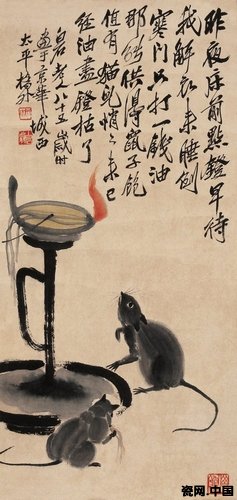 昨夜床前點鐙早待
我解衣来睡倒
寒門只打一錢油
那能供得鼠子飽
值有猫兒悄悄来已
經油盡鐙枯了
白石老人八十五歲時
畫于京華城西
太平橋外
瓷网.中国